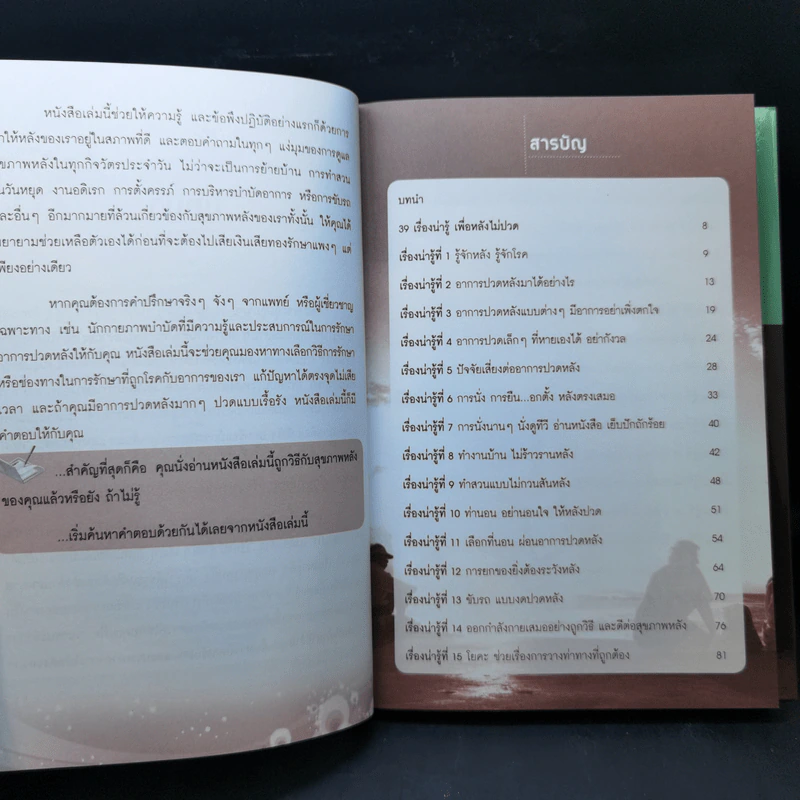 หนังสือเล่มนี้ช่วยให้ความรู้ และข้อพึงปฏิบัติอย่างแรกก็ด้วยการ
ให้หลังของเราอยู่ในสภาพที่ดี และตอบคำถามในทุกๆ แง่มุมของการดูแล
สุขภาพหลังในทุกกิจวัตรประจำวัน ไม่ว่าจะเป็นการย้ายบ้าน การทำสวน
วันหยุด งานอดิเรก การตั้งครรภ์ การบริหารบำบัดอาการ หรือการขับรถ
และอื่นๆ อีกมากมายที่ล้วนเกี่ยวข้องกับสุขภาพหลังของเราทั้งนั้น ให้คุณได้
พยายามช่วยเหลือตัวเองได้ก่อนที่จะต้องไปเสียเงินเสียทองรักษาแพงๆ แต่
เพียงอย่างเดียว
หากคุณต้องการคำปรึกษาจริงๆ จังๆ จากแพทย์ หรือผู้เชี่ยวชาญ
เฉพาะทาง เช่น นักกายภาพบำบัดที่มีความรู้และประสบการณ์ในการรักษา
อาการปวดหลังให้กับคุณ หนังสือเล่มนี้จะช่วยคุณมองหาทางเลือกวิธีการรักษา
หรือช่องทางในการรักษาที่ถูกโรคกับอาการของเรา แก้ปัญหาได้ตรงจุดไม่เสีย
เวลา และถ้าคุณมีอาการปวดหลังมากๆ ปวดแบบเรื้อรัง หนังสือเล่มนี้ก็มี
คำตอบให้กับคุณ
...สำคัญที่สุดก็คือ คุณนั่งอ่านหนังสือเล่มนี้ถูกวิธีกับสุขภาพหลัง
ของคุณแล้วหรือยัง ถ้าไม่รู้
...เริ่มค้นหาคำตอบด้วยกันได้เลยจากหนังสือเล่มนี้
สารบัญ
บทนำ
39 เรื่องน่ารู้ เพื่อหลังไม่ปวด 8
เรื่องน่ารู้ที่ 1 รู้จักหลัง รู้จักโรค 9
เรื่องน่ารู้ที่ 2 อาการปวดหลังมาได้อย่างไร 13
เรื่องน่ารู้ที่ 3 อาการปวดหลังแบบต่างๆ มีอาการอย่าเพิ่งตกใจ 19
เรื่องน่ารู้ที่ 4 อาการปวดเล็กๆ ที่หายเองได้ อย่ากังวล 24
เรื่องน่ารู้ที่ 5 ปัจจัยเสี่ยงต่ออาการปวดหลัง 28
เรื่องน่ารู้ที่ 6 การนั่ง การยืน...อกตั้ง หลังตรงเสมอ 33
เรื่องน่ารู้ที่ 7 การนั่งนานๆ นั่งดูทีวี อ่านหนังสือ เย็บปักถักร้อย 40
เรื่องน่ารู้ที่ 8 ทำงานบ้าน ไม่ร้าวรานหลัง 42
เรื่องน่ารู้ที่ 9 ทำสวนแบบไม่กวนสันหลัง 48
เรื่องน่ารู้ที่ 10 ท่านอน อย่านอนใจ ให้หลังปวด 51
เรื่องน่ารู้ที่ 11 เลือกที่นอน ผ่อนอาการปวดหลัง 54
เรื่องน่ารู้ที่ 12 การยกของยิ่งต้องระวังหลัง 64
เรื่องน่ารู้ที่ 13 ขับรถ แบบงดปวดหลัง 70
เรื่องน่ารู้ที่ 14 ออกกำลังกายเสมออย่างถูกวิธี และดีต่อสุขภาพหลัง 76
เรื่องน่ารู้ที่ 15 โยคะ ช่วยเรื่องการวางท่าทางที่ถูกต้อง 81